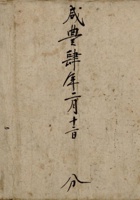 咸豐肆年二月十二日 分